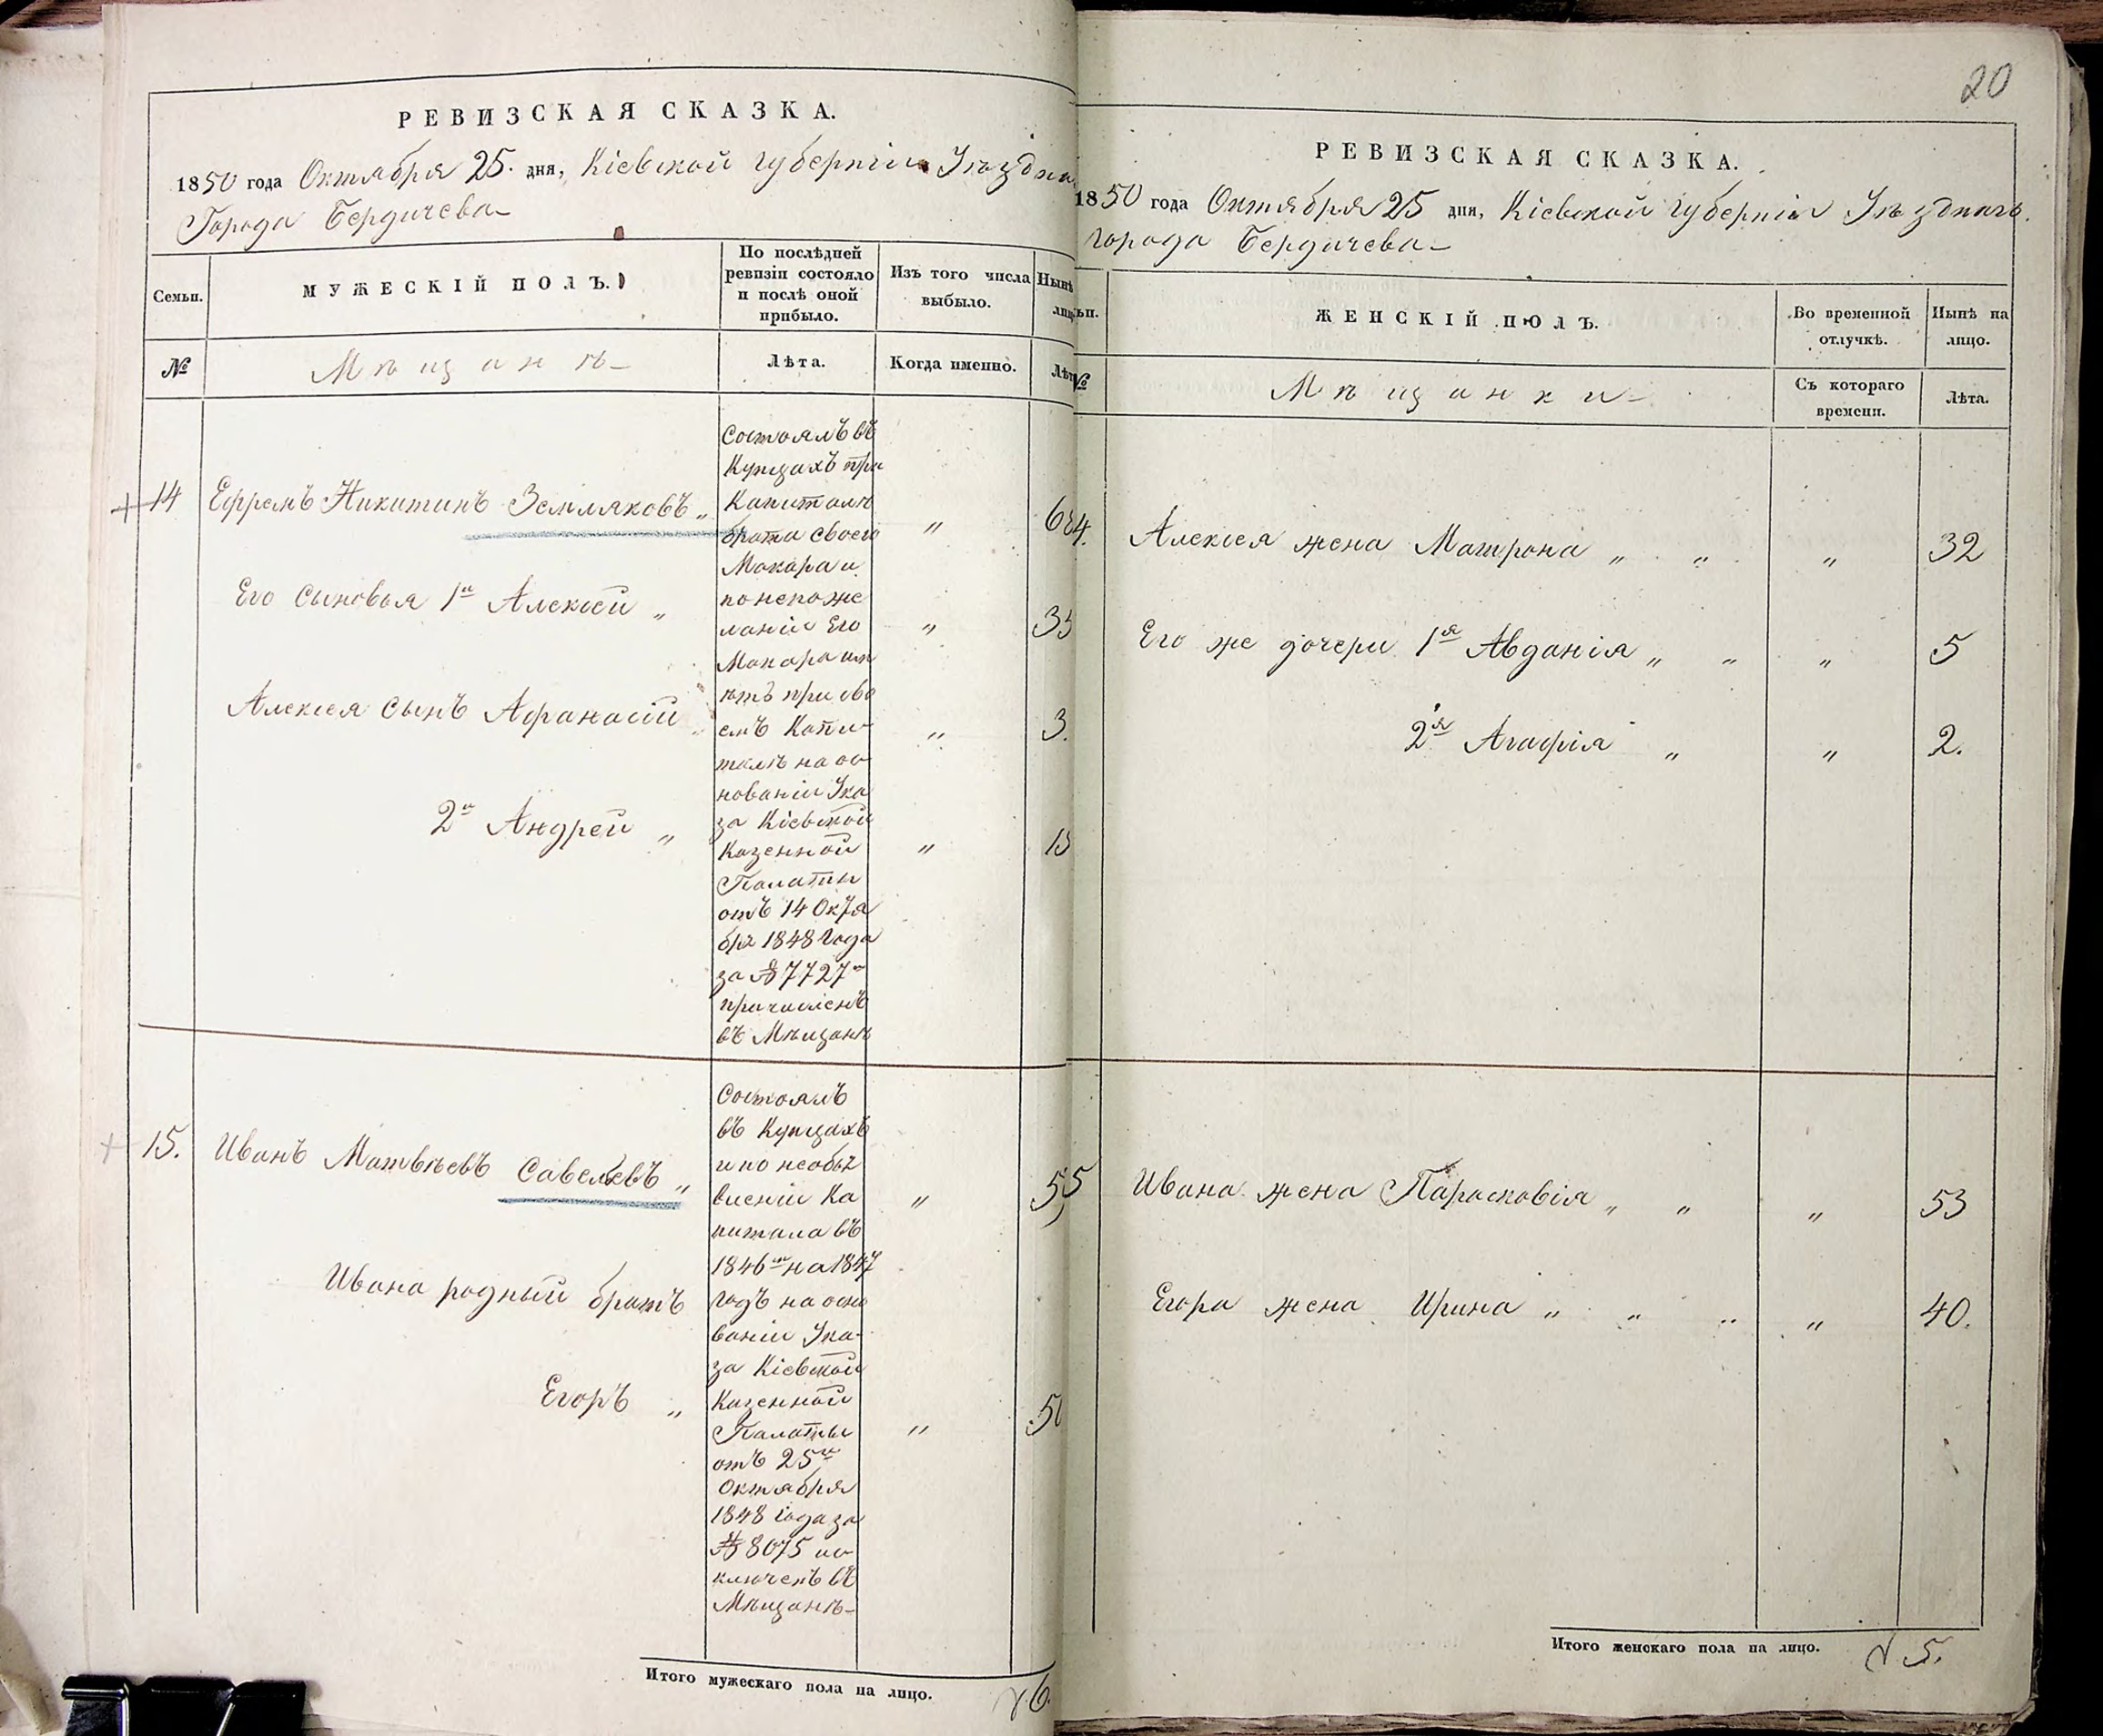 РЕВИЗСКАЯ СКАЗКА.
1850 года Октября 25. дня, Кіевской губерніи Уѣздна
Города Бердичева
Семьи.
МУЖЕСКІЙ ПОЛЪ.
По послѣдней
ревизіи состояло
и послѣ оной
прибыло.
Изъ того числа
выбыло.
Нынѣ
лиц
№
Мѣщанѣ
Лѣта.
Когда именно.
Лѣт
14
Ефремъ Никитинъ Земляковъ „
Его сыновья 1й Алексѣй „
Алексея сынъ Афанасій „
2й Андрей „
Состоялъ въ
Купцахъ при
Капиталѣ
брата своего
Макара и
по непоже
ланію Его
Макара им
ѣть при сво
емъ Капи-
талѣ на ос
нованіи Ука
за Кіевской
Казенной
Палаты
отъ 14 Октя
бря 1848 года
за № 7727м
причисленъ
въ Мѣщанѣ
„
„
„
„
35
3.
15.
Иванъ Матвѣевъ Савельевъ „
Ивана родный братъ
Егоръ „
Состоялъ
въ Купцахъ
и по необъя
вленію Ка
питала въ
1846м на 1847
годъ на осно
ваніи Ука-
за Кіевской
Казенной
Палаты
отъ 25го
Октября
1848 года за
№ 8075 ис
ключенъ въ
Мѣщанѣ
„
„
55
50
Итого мужескаго пола на лицо. 6.
20
РЕВИЗСКАЯ СКАЗКА.
1850 года Октября 25 дня, Кіевской губерніи Уѣзднаго
города Бердичева
ьи.
ЖЕНСКІЙ ПОЛЪ.
Во временной
отлучкѣ.
Нынѣ на
лицо.
№
Мѣщанки
Съ котораго
времени.
Лѣта.
4. Алексея жена Матрона „ „ „ 32
Его же дочери 1я Авданія „ „ „ 5
2я Агафія „ „ 2.
5 Ивана жена Парасковія „ „ „ 53
Егора жена Ирина „ „ „ „ 40.
Итого женскаго пола на лицо. 5.